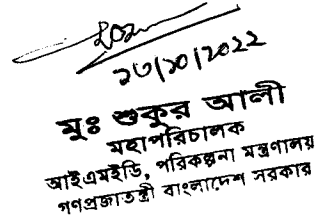 ২৩/১০/২০২২
মুঃ শুকুর আলী
মহাপরিচালক
আইএমইডি, পরিকল্পনা মন্ত্রণালয়
গণপ্রজাতন্ত্রী বাংলাদেশ সরকার